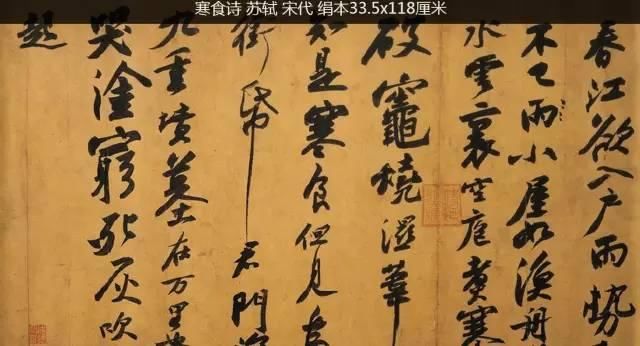 寒食诗 苏轼 宋代 绢本33.5x118厘米
春江欲入戶雨勢
不已雨小屋如漁舟
水雲裏空庖煮寒
破竈燒濕葦
知是寒食但見烏
銜帋君門深
九重墳墓在万里
哭塗窮死灰吹
起